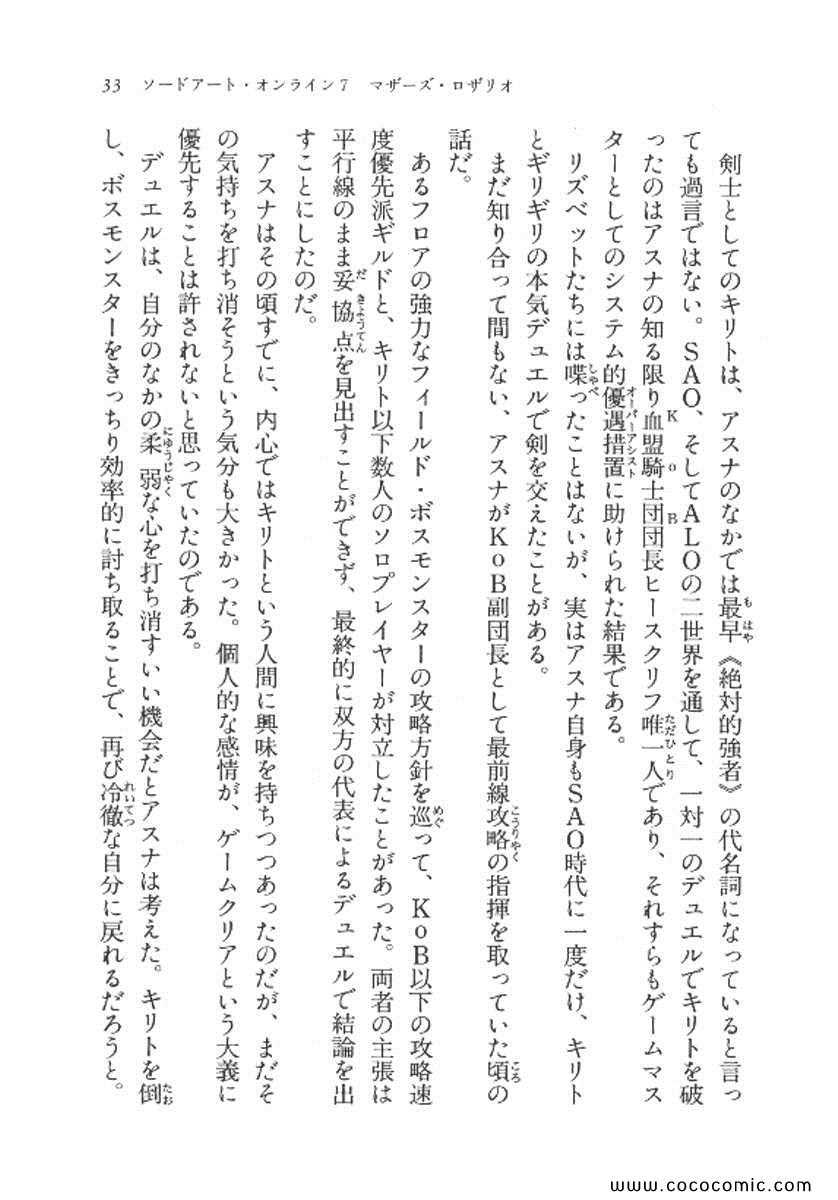 33　ソードアート・オンライン7　マザーズ・ロザリオ
　剣士としてのキリトは、アスナのなかでは最早《絶対的強者》の代名詞になっていると言っ
ても過言ではない。SAO、そしてALOの二世界を通して、一対一のデュエルでキリトを破
ったのはアスナの知る限り血盟騎士団団長ヒースクリフ唯一人であり、それすらもゲームマス
ターとしてのシステム的優遇措置に助けられた結果である。
　リズベットたちには喋ったことはないが、実はアスナ自身もSAO時代に一度だけ、キリト
とギリギリの本気デュエルで剣を交えたことがある。
　まだ知り合って間もない、アスナがKoB副団長として最前線攻略の指揮を取っていた頃の
話だ。
　あるフロアの強力なフィールド・ボスモンスターの攻略方針を巡って、KoB以下の攻略速
度優先派ギルドと、キリト以下数人のソロプレイヤーが対立したことがあった。両者の主張は
平行線のまま妥協点を見出すことができず、最終的に双方の代表によるデュエルで結論を出
すことにしたのだ。
　アスナはその頃すでに、内心ではキリトという人間に興味を持ちつつあったのだが、まだそ
の気持ちを打ち消そうという気分も大きかった。個人的な感情が、ゲームクリアという大義に
優先することは許されないと思っていたのである。
　デュエルは、自分のなかの柔弱な心を打ち消すいい機会だとアスナは考えた。キリトを倒
し、ボスモンスターをきっちり効率的に討ち取ることで、再び冷徹な自分に戻れるだろうと。
www.cococomic.com